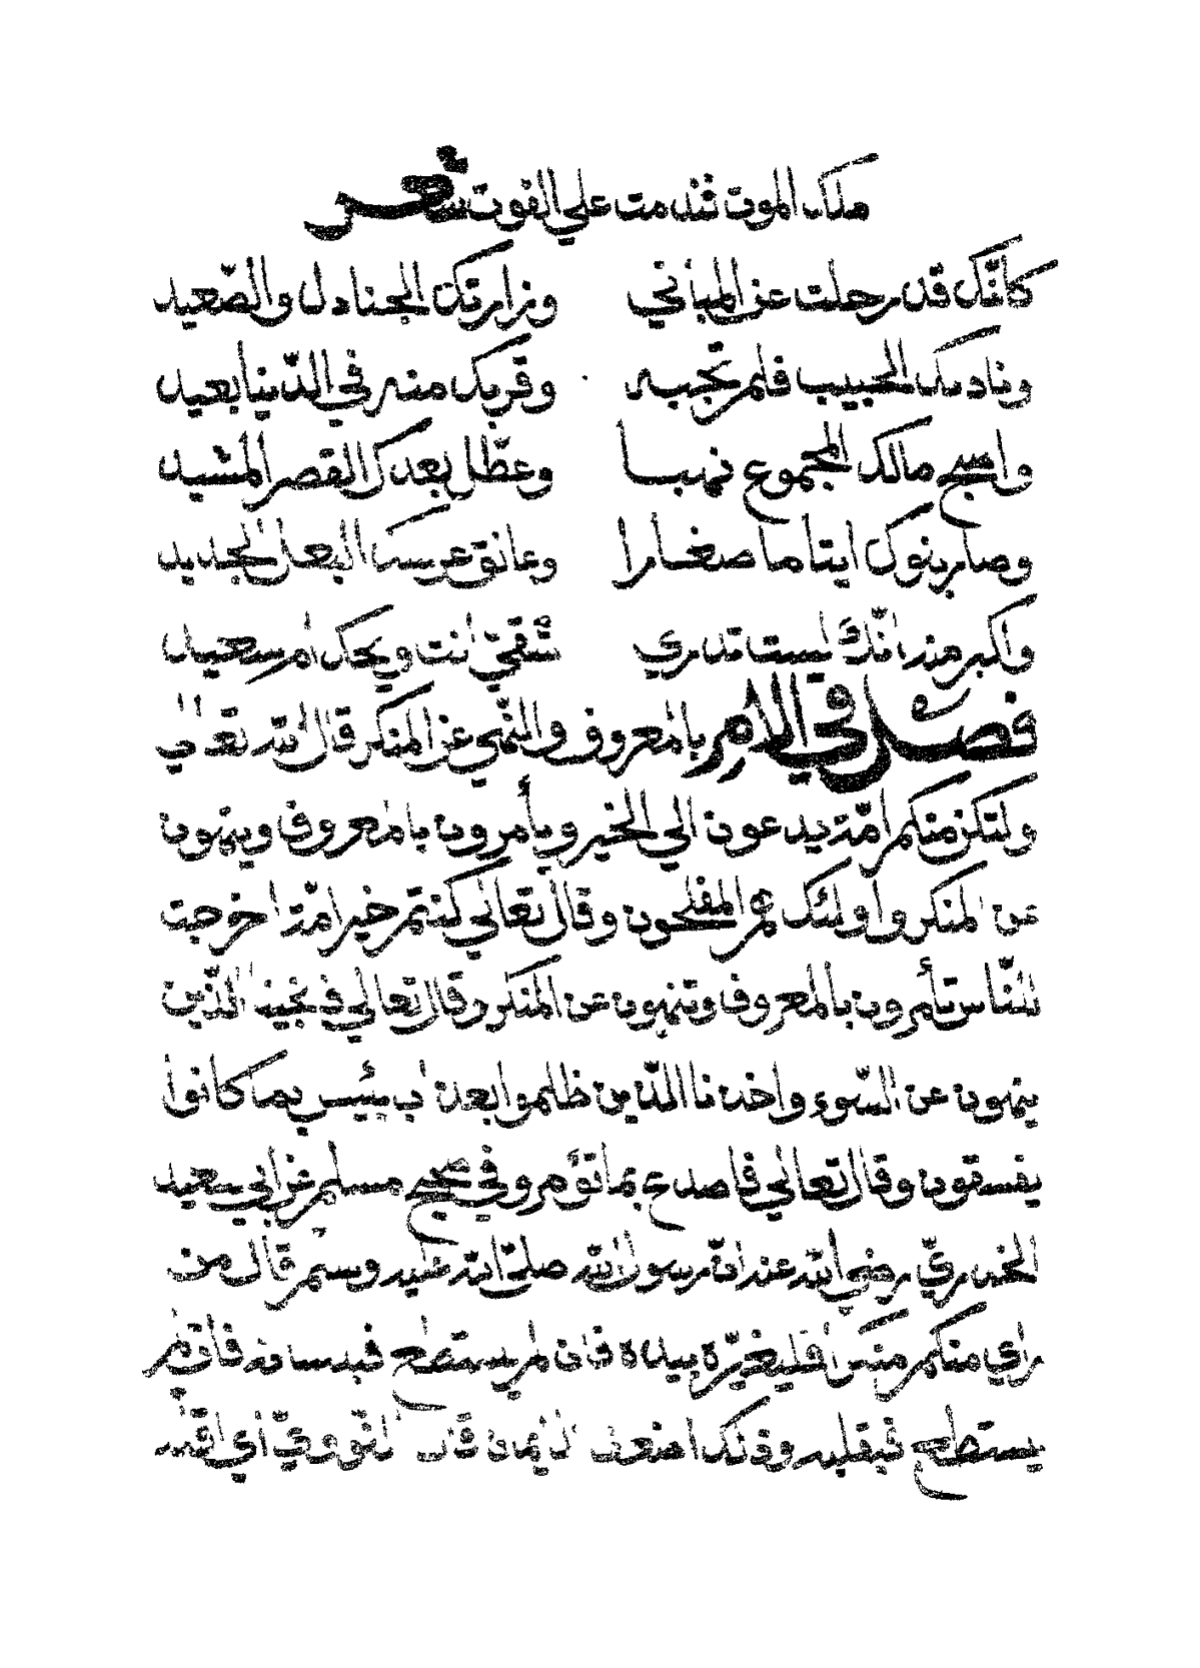 ملك الموت فندمت علي الفوت شعر
كانّك قد رحلت عن المباني وزارتك الجنادل والصّعيد
وناديك الحبيب فلم تجبه وقربك منه في الدّنيا بعيد
واصبح مالك المجموع نهبا وعطّل بعدك القصر المشيد
وصار بنوك ايتاما صغارا وعانق عرسك البعل الجديد
واكبر منه انّك لست تدري شقيّ انت ويحك ام سعيد
فصل في الامر بالمعروف والنّهي عن المنكر قال الله تعالي
ولتكن منكم امّة يدعون الي الخير ويأمرون بالمعروف وينهون
عن المنكر واولئك هم المفلحون وقال تعالي كنتم خير امّة اخرجت
للنّاس تأمرون بالمعروف وتنهون عن المنكر وقال تعالي فانجينا الّذين
ينهون عن السّوء واخذنا الّذين ظلموا بعذاب بئيس بما كانوا
يفسقون وقال تعالي فاصدع بما تؤمر وفي صحيح مسلم عن ابي سعيد
الخدريّ رضي الله عنه انّ رسول الله صلّي الله عليه وسلم قال من
راي منكم منكرا فليغيّره بيده فان لم يستطع فبلسانه فان لم
يستطع فبقلبه وذلك اضعف الايمان قال النّوويّ اي اقلّه